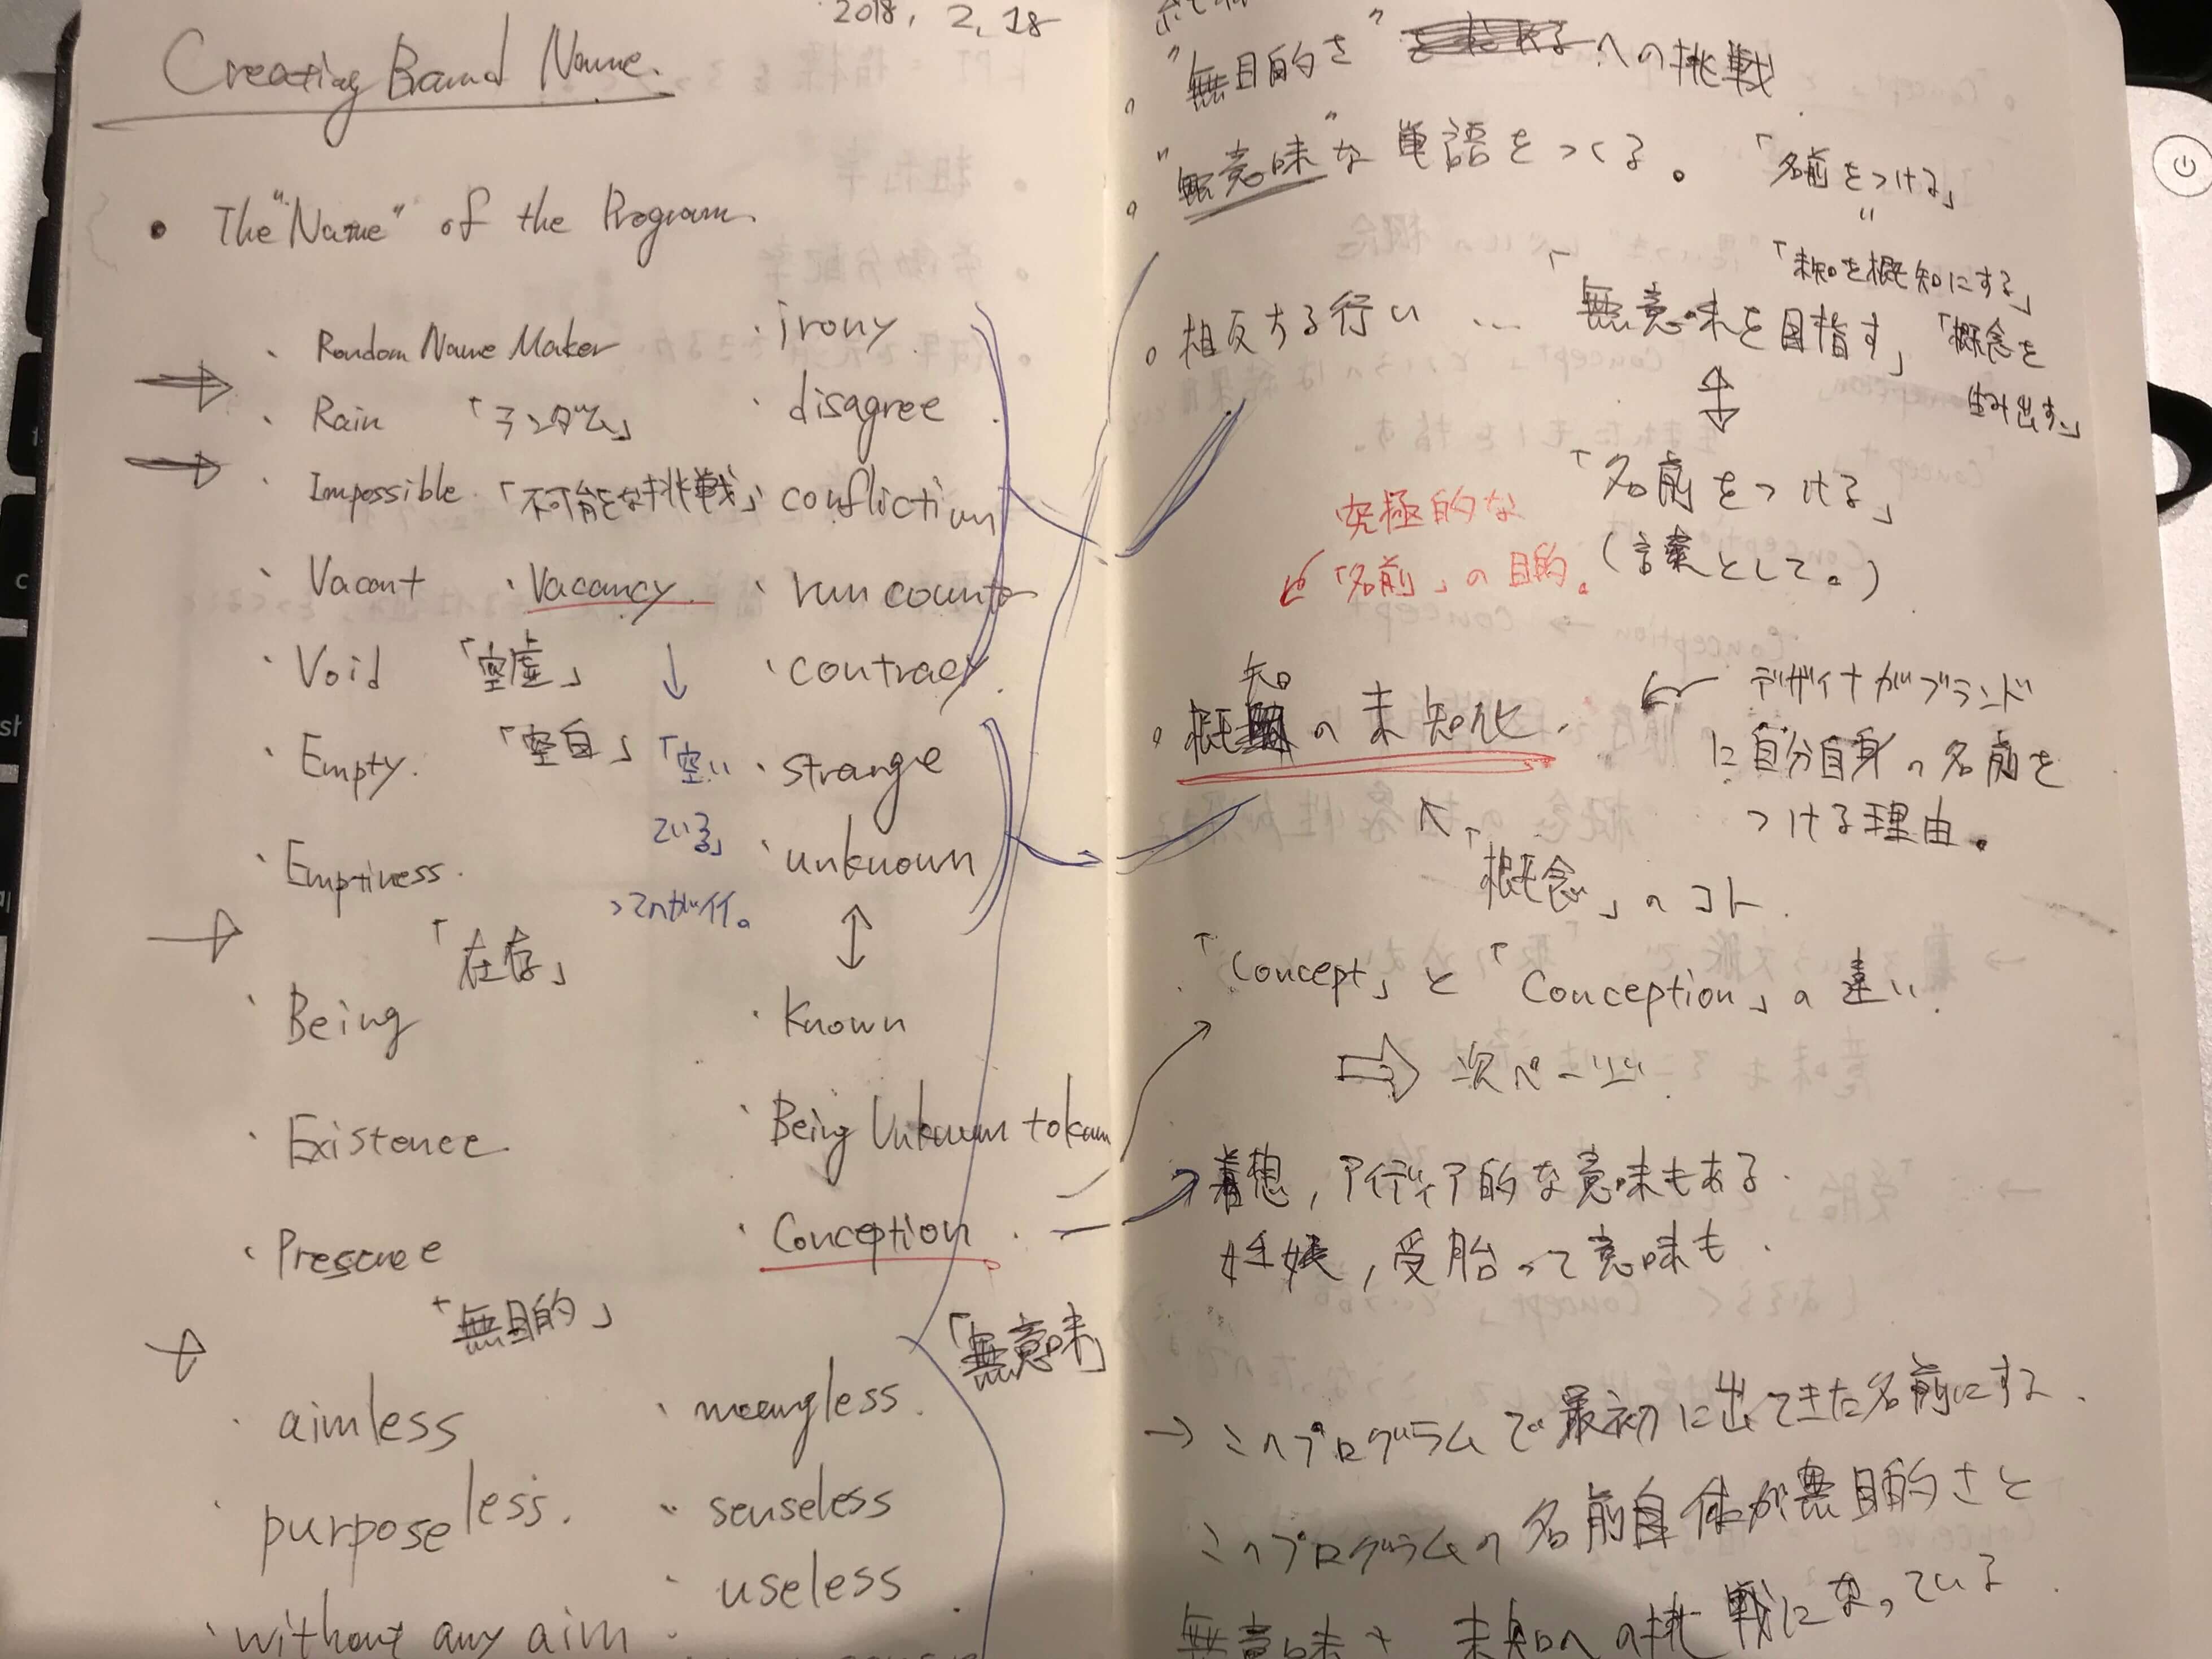 2018, 2, 18
Creating Brand Name.
• The "Name" of the Program.
・Random Name Maker
・Rain 「ランダム」
・Impossible 「不可能な挑戦」
・Vacant ・Vacancy.
・Void 「空虚」
↓
・Empty. 「空白」
「空い
ている」
ってのがイイ。
・Emptiness.
「在存」
・Being
・Existence
・Presence
「無目的」
・aimless
・purposeless.
・without any aim
・irony
・disagree
・confliction
・run counter
・contracy
・strange
・unknown
↕
・Known
・Being Unknown to
・Conception
「無意味」
・meaningless.
・senseless
・useless
。"無目的さ" への挑戦
。"無意味"な単語をつくる。
「名前をつける」
"
「未知を概知にする」
「概念を
生み出す。」
。相反する行い … 「無意味を目指す」
↕
「名前をつける」
(言葉として。)
究極的な
「名前」の目的。
。概知の未知化.
← デザイナがブランド
に自分自身の名前を
つける理由。
「概念」のコト.
「Concept」と「Conception」の違い.
⇒ 次ページ
着想, アイディア的な意味もある.
妊娠, 受胎って意味も.
→ このプログラムで最初に出てきた名前にする.
このプログラムの名前自体が無目的さと
無意味さ 未知への挑戦になっている.